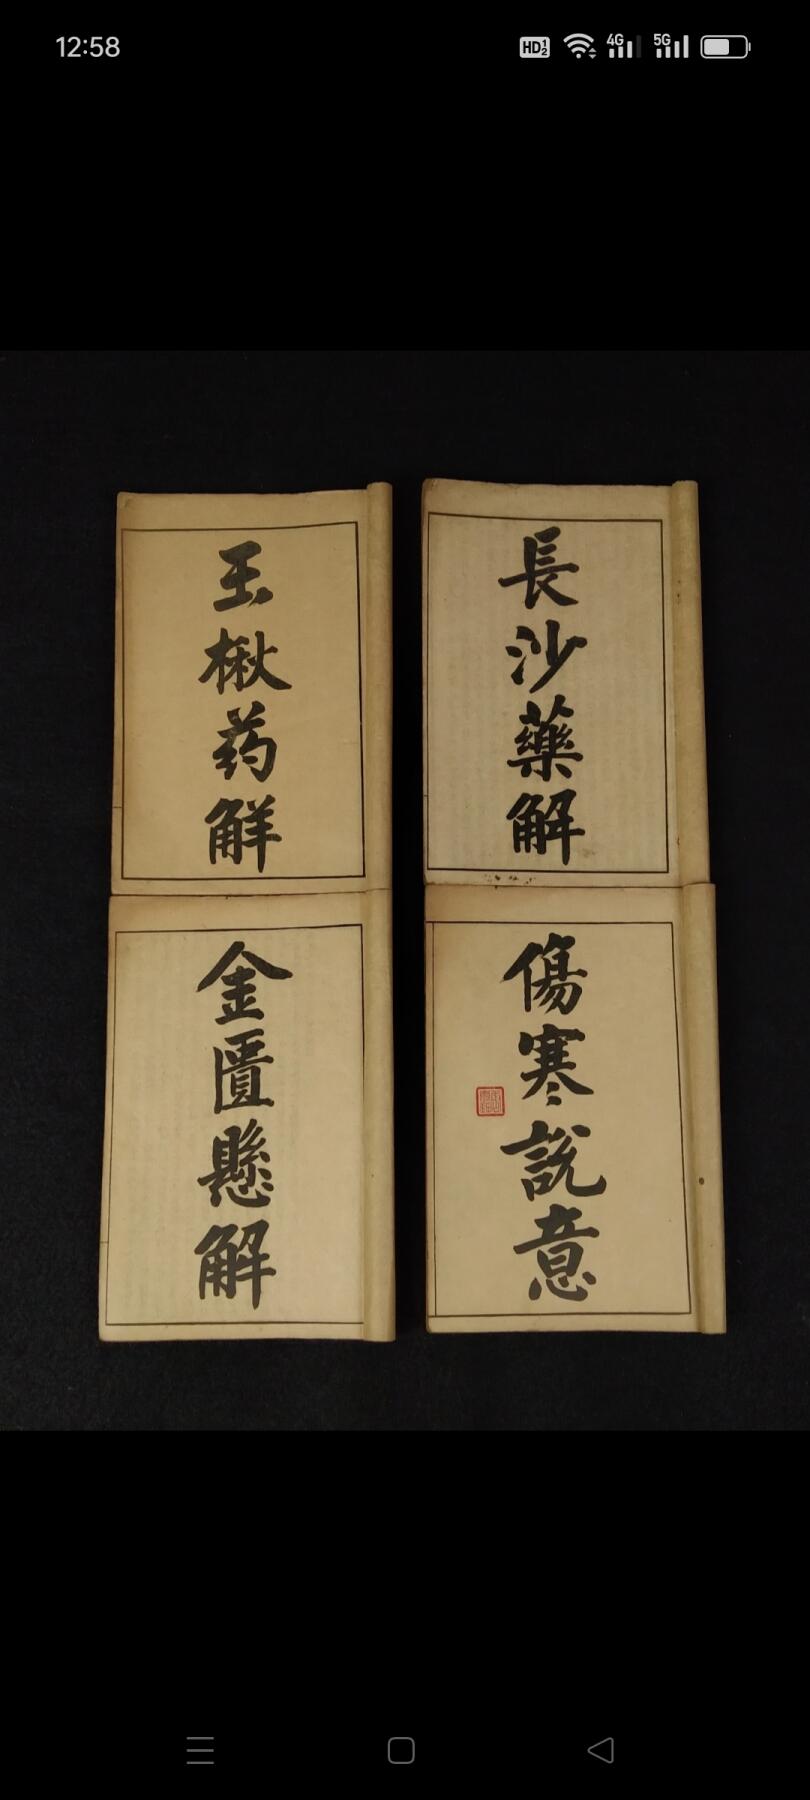 12:58
HD 1 2
4G
5G
長沙藥解
玉楸药解
傷寒說意
金匱懸解